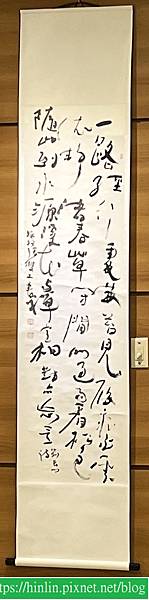 一路經行處莓苔見履痕白雲
依靜渚春草閉閒門過雨看松色
隨山到水源溪花與禪意相對亦忘言
ttps://hinlin.pixnet.net/blog